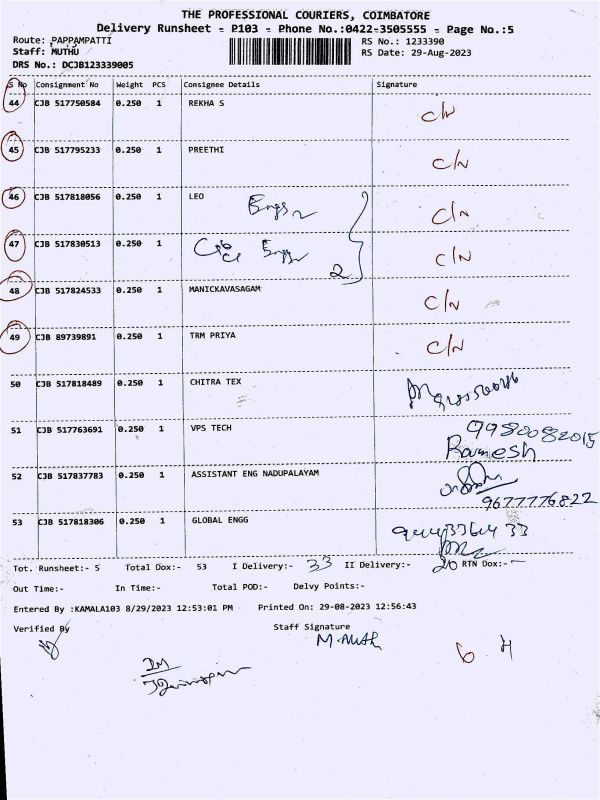 THE PROFESSIONAL COURIERS, COIMBATORE
Delivery Runsheet - P103 - Phone No.:0422-3505555 - Page No.:5
Route: PAPPAMPATTI RS No.: 1233390
Staff: MUTHU RS Date: 29-Aug-2023
DRS No.: DCJB123339005
S No Consignment No Weight PCS Consignee Details Signature
44 CJB 517750584 0.250 1 REKHA S C/N
45 CJB 517795233 0.250 1 PREETHI C/N
46 CJB 517818056 0.250 1 LEO C/N
47 CJB 517830513 0.250 1 2 C/N
48 CJB 517824533 0.250 1 MANICKAVASAGAM C/N
49 CJB 89739891 0.250 1 TRM PRIYA C/N
50 CJB 517818489 0.250 1 CHITRA TEX
51 CJB 517763691 0.250 1 VPS TECH 9980082015
Ramesh
52 CJB 517837783 0.250 1 ASSISTANT ENG NADUPALAYAM
9677776822
53 CJB 517818306 0.250 1 GLOBAL ENGG
Tot. Runsheet:- 5 Total Dox:- 53 I Delivery:- 33 II Delivery:- 20 RTN Dox:-
Out Time:- In Time:- Total POD:- Delvy Points:-
Entered By :KAMALA103 8/29/2023 12:53:01 PM Printed On: 29-08-2023 12:56:43
Verified By Staff Signature
6